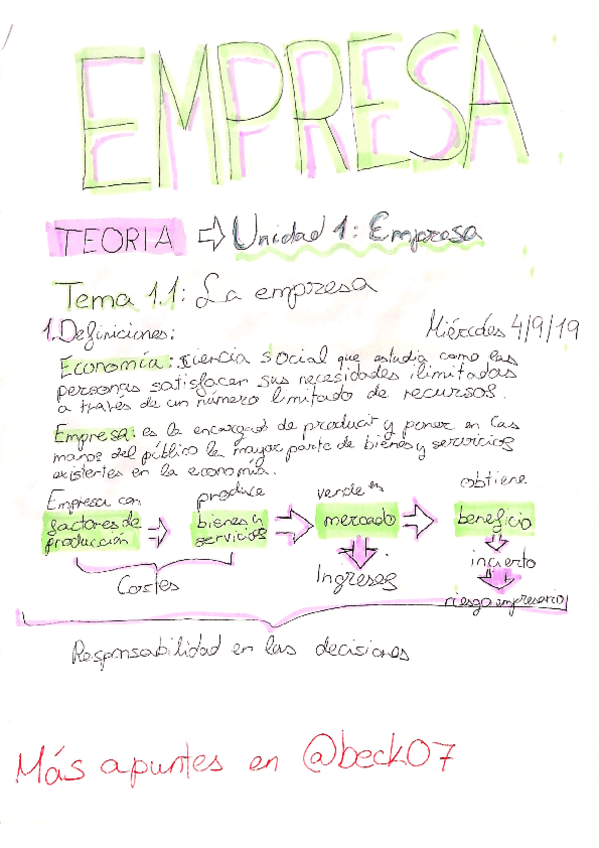 EMPRESA
TEORIA ⇨ Unidad 1: Empresa
Tema 1.1: La empresa
1. Definiciones: Miércoles 4/9/19
Economía: ciencia social que estudia como las
personas satisfacen sus necesidades ilimitadas
a través de un número limitado de recursos.
Empresa: es la encargada de producir y poner en las
manos del público la mayor parte de bienes y servicios
existentes en la economía.
Empresa con produce vende en obtiene
factores de producción ⇨ bienes y servicios ⇨ mercado ⇨ beneficio
Costes Ingresos incierto
riesgo empresarial
Responsabilidad en las decisiones
Más apuntes en @beck07